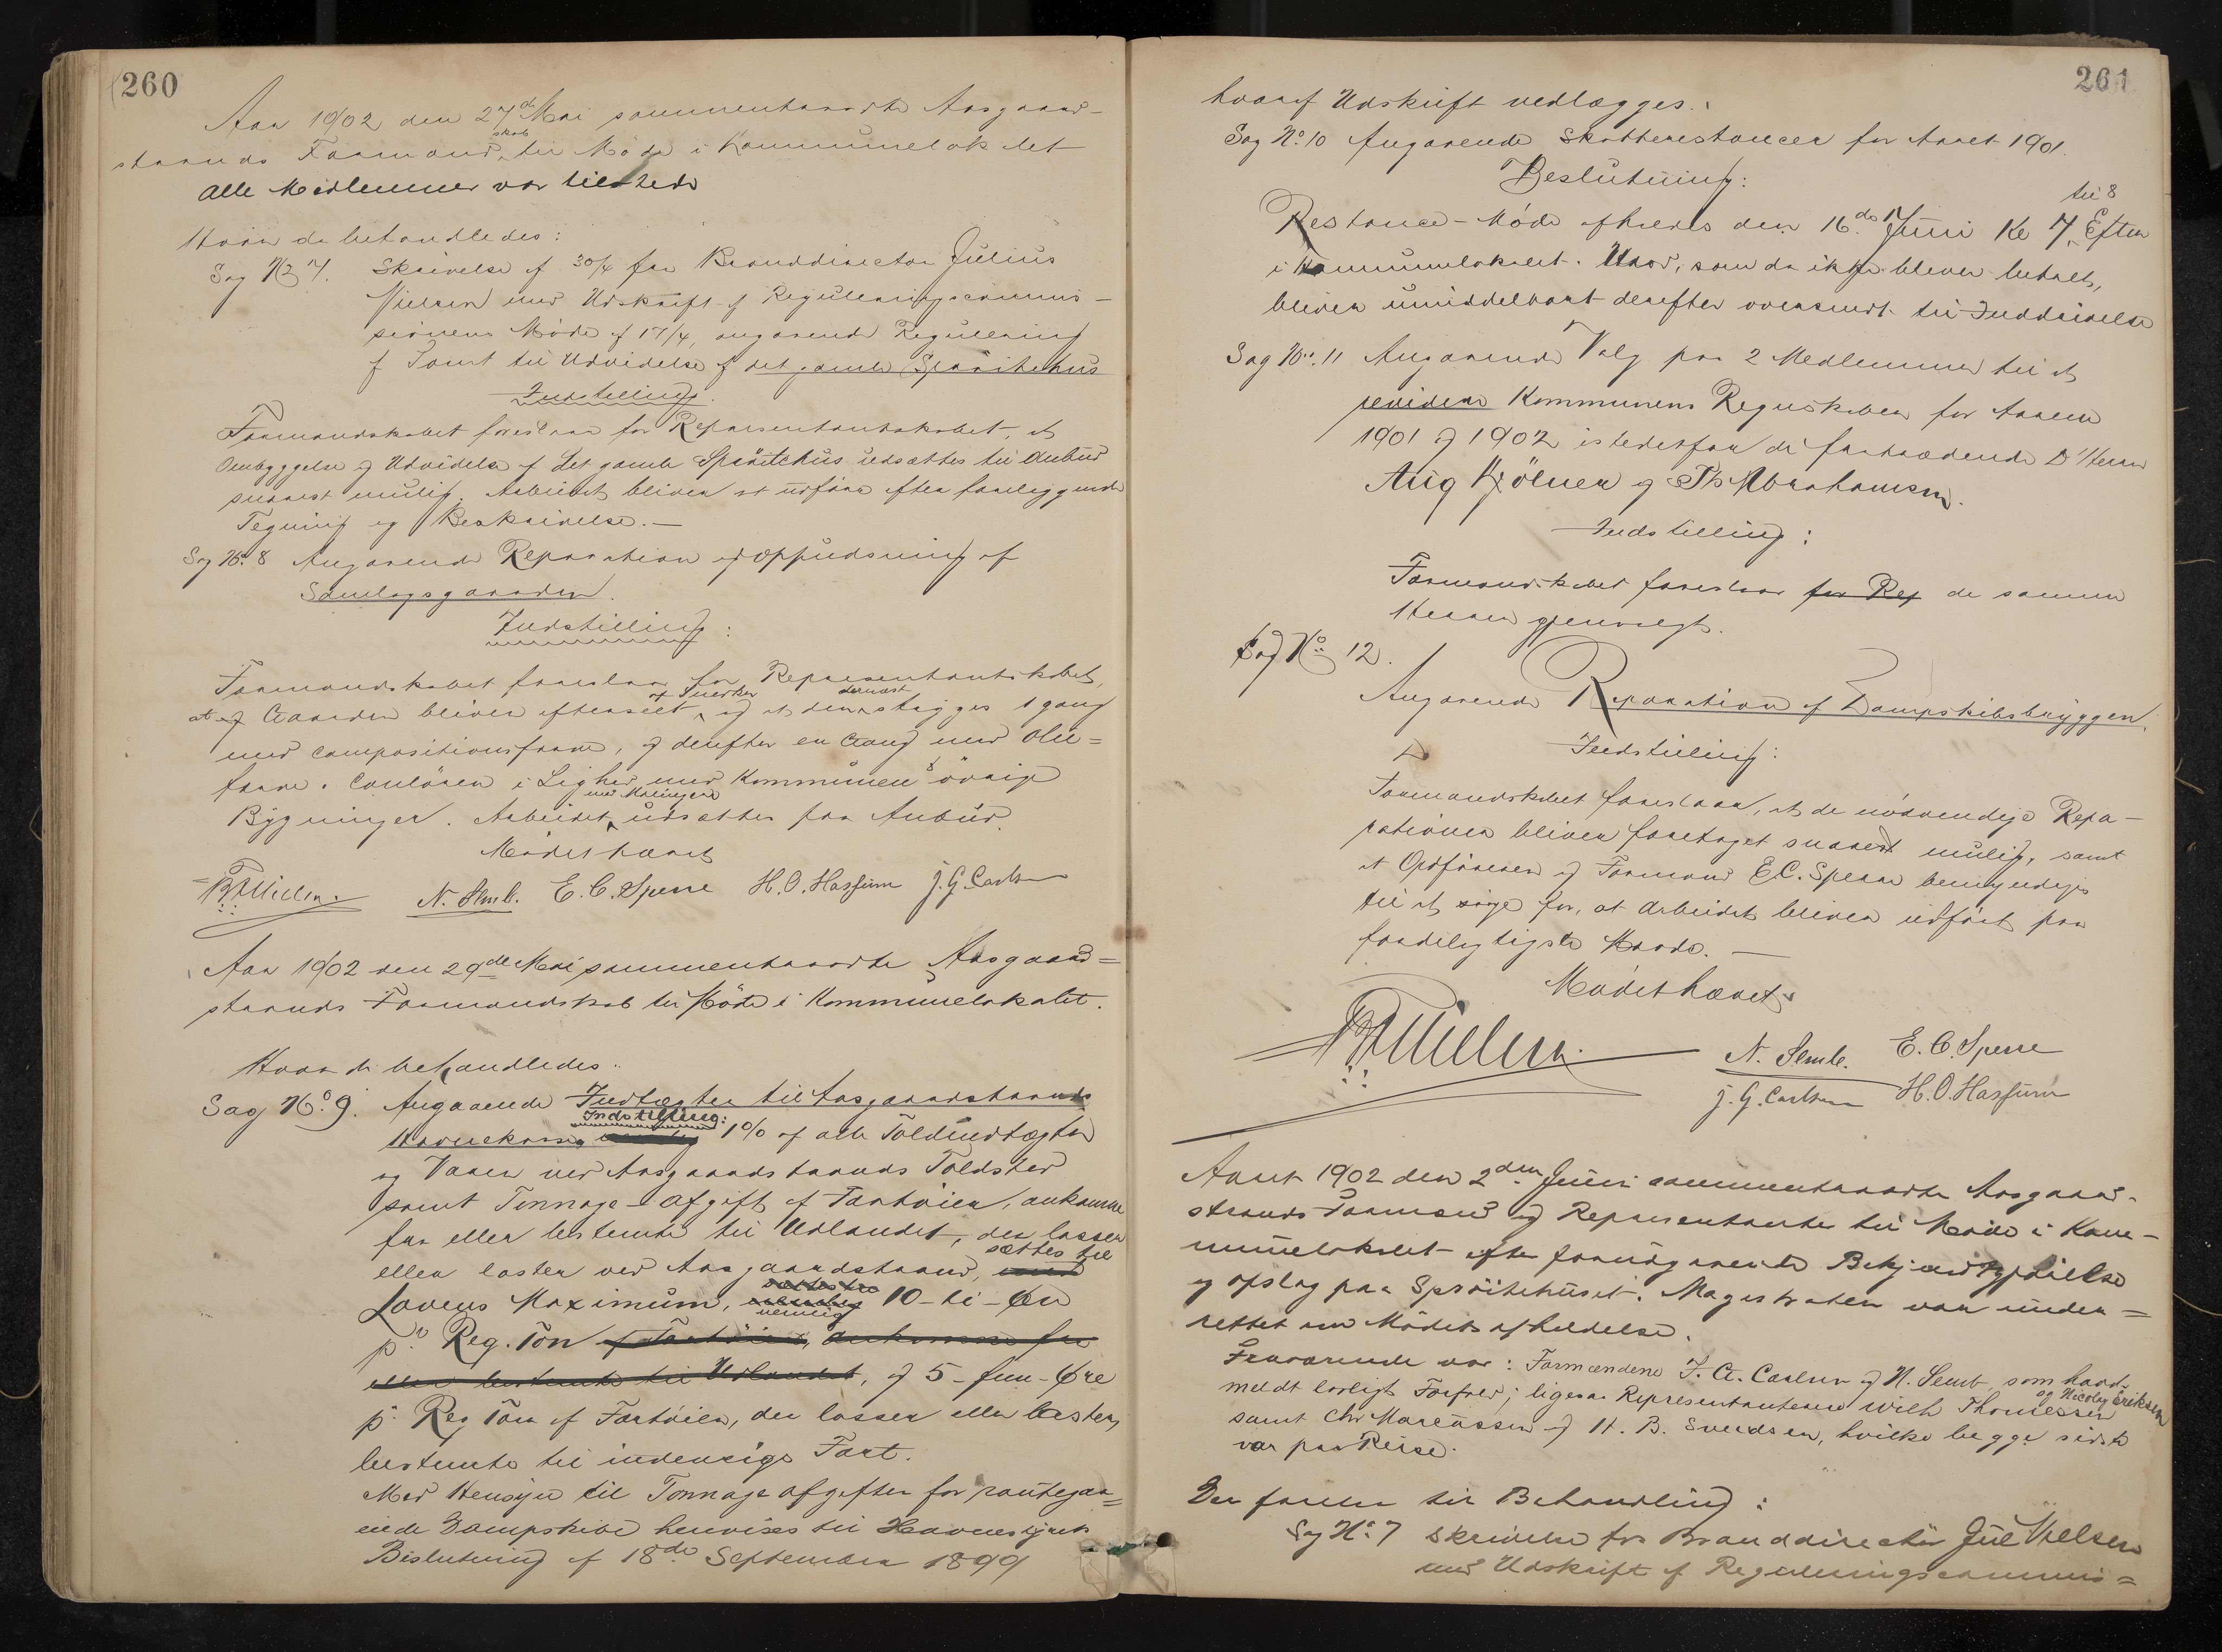 260
Aar 1902 den 27de Mai sammentraadte Aasgaard-
strands Formandskab til Møde i Kommunelokalet
Alle Medlemmer var tilstede
Hvor da behandledes:
Sag No 7. Skrivelse af 30/4 fra Branddirector Julius
Nielsen med Udskrift af Reguleringscommis-
sionens Møde af 17/4, angaaende Regulering
af Tomt til Udvidelse af det gamle Sprøitehus
Indstilling.
Formandskabet foreslaar for Repræsentantskabet, at
Ombyggelse og Udvidelse af det gamle Sprøitehus udsættes til Anbud
snarest mulig. Arbeidet bliver at udføre efter foreliggende
Tegning og Beskrivelse.—
Sag No. 8 Angaaende Reparation og oppudsning af
Samlagsgaarden.
Indstilling:
Formandskabet foreslaar for Repræsentantskabet,
at Gaarden bliver efterseet af Snedker, og at den dernæst stryges 1 gang
med compositionsfarve, og derefter en Gang med Olie=
farve. Couløren i Lighed med Kommunens øvrige
Bygninger. Arbeidet med Malingen udsættes paa Anbud.
Mødet hævet
N. Semb. E. C. Sperre H. O. Hassum J. G. Carlsen
Aar 1902 den 29de Mai sammentraadte Aasgaard=
strands Formandskab til Møde i Kommunelokalet.
Hvor da behandledes:
Sag No. 9. Angaaende Indtægter til Aasgaardstrands
Havnekasse Indstilling: 1% af alle Toldindtægter
og Varer ved Aasgaardstrands Toldsted
samt Tonnage-afgift af Fartøier, ankomne
fra eller bestemte til Udlandet, der losser
eller laster ved Aasgaardstrand, sættes til
Lovens Maximum, nemlig 10-ti-Øre
pr. Reg. Ton af Fartøier, ankomne fra
eller bestemte til Udlandet, og 5-fem-Øre
pr. Reg Ton af Fartøier, der losser eller laster,
bestemte til indenrigs Fart.
Med Hensyn til Tonnage afgiften for routegaa=
ende Dampskibe henvises til Havnestyrets
Beslutning af 18de September 1899
261
hvoraf Udskrift vedlægges.
Sag No. 10 Angaaende Skatterestancer for Aaret 1901.
Beslutning:
Restance-Møde afholdes den 16de Juni Kl 7 til 8 Efter
i Kommunelokalet. Hvad, som da ikke bliver betalt,
bliver umiddelbart derefter oversendt til Inddrivelse
Sag No. 11 Angaaende Valg paa 2 Medlemmer til at
revidere Kommunens Regnskaber for Aarene
1901 og 1902 istedetfor de fratrædende D'Herrer
Aug Kjølner og Th Abrahamsen.
Indstilling:
Formandskabet foreslaar for Rep de samme
Herrer gjenvalgt.
Sag No. 12.
Angaaende Reparation af Dampskibsbryggen.
Indstilling:
Formandskabet foreslaar, at de nødvendige Repa-
rationer bliver foretaget snarest mulig, samt
at Ordføreren og Formand E.C. Sperre bemyndiges
til at sørge for, at Arbeidet bliver udført paa
fordelagtigste Maade.—
Mødet hævet
N. Semb. E. C. Sperre
J. G. Carlsen H. O. Hassum
Aaret 1902 den 2den Juni sammentraadte Aasgaard-
strands Formænd og Repræsentanter til Møde i Kom-
munelokalet efter forudgaaende Bekjendtgjørelse
og opslag paa Sprøitehuset. Magistraten var under=
rettet om Mødets afholdelse.
Fraværende var: Formændene J. G. Carlsen og N. Semb som havde
meldt lovligt Forfald; ligesaa Repræsentanterne Wilh Thomessen og Nicolay Eriksen
samt Chr Marcussen og H. B. Svendsen, hvilke begge sidste
var paa Reise.
Der foretoges til Behandling:
Sag No. 7 Skrivelse fra Branddirektør Jul Nielsen
med Udskrift af Reguleringscommis=